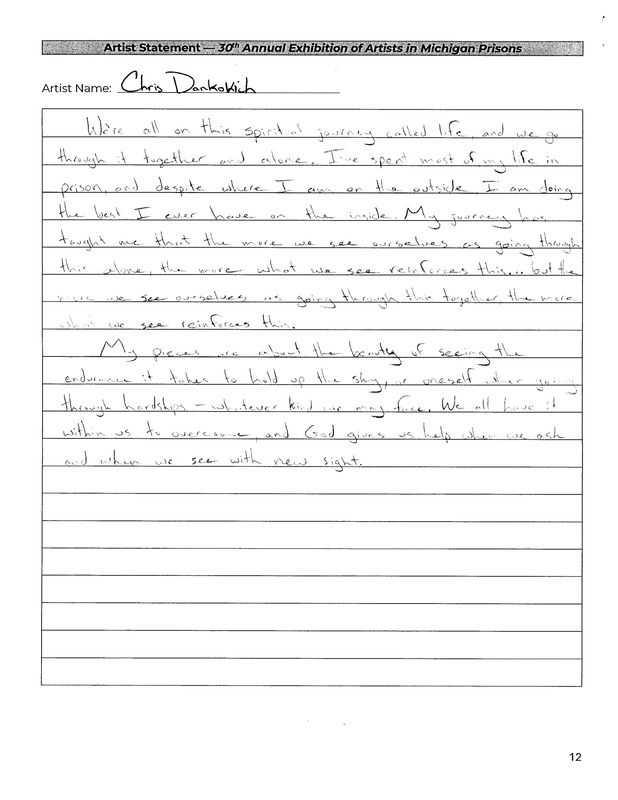 Artist Statement — 30th Annual Exhibition of Artists in Michigan Prisons
Artist Name: Chris Dankovich
We're all on this spiritual journey called life, and we go
through it together and alone. I've spent most of my life in
prison, and despite where I am on the outside, I am doing
the best I ever have on the inside. My journey has
taught me that the more we see ourselves as going through
this alone, the more what we see reinforces this... but the
more we see ourselves as going through this together, the more
what we see reinforces this.
My pieces are about the beauty of seeing the
endurance it takes to hold up the sky, or oneself when going
through hardships – whatever kind we may face. We all have it
within us to overcome, and God gives us help when we ask
and when we see with new sight.
12